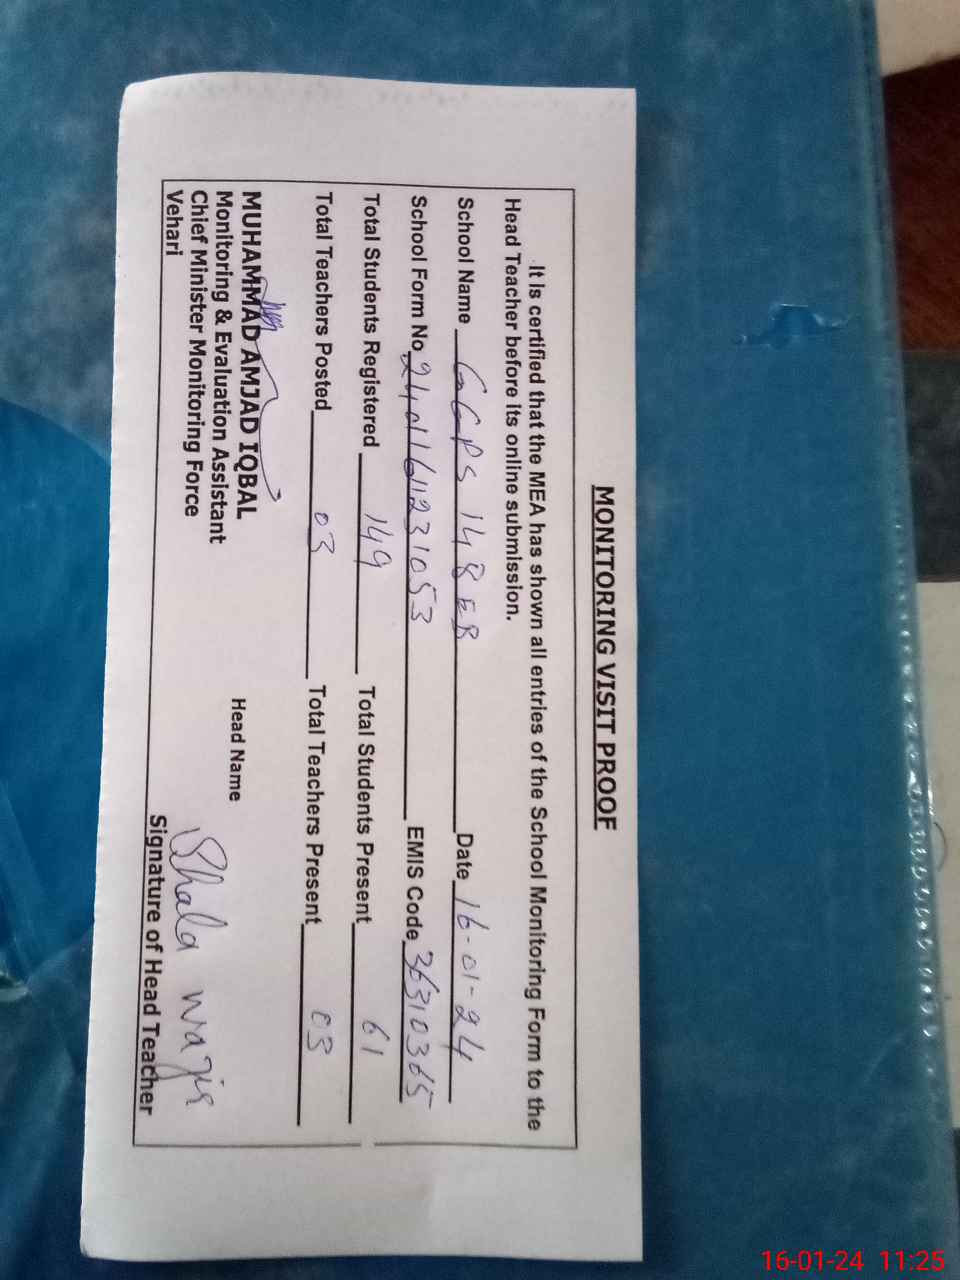 MONITORING VISIT PROOF
It is certified that the MEA has shown all entries of the School Monitoring Form to the
Head Teacher before its online submission.
School Name GGPS 148 EB Date 16-01-24
School Form No 24011611231053 EMIS Code 36310365
Total Students Registered 149 Total Students Present 61
Total Teachers Posted 03 Total Teachers Present 03
MUHAMMAD AMJAD IQBAL
Monitoring & Evaluation Assistant
Chief Minister Monitoring Force
Vehari
Head Name
Shala
Signature of Head Teacher
16-01-24 11:25